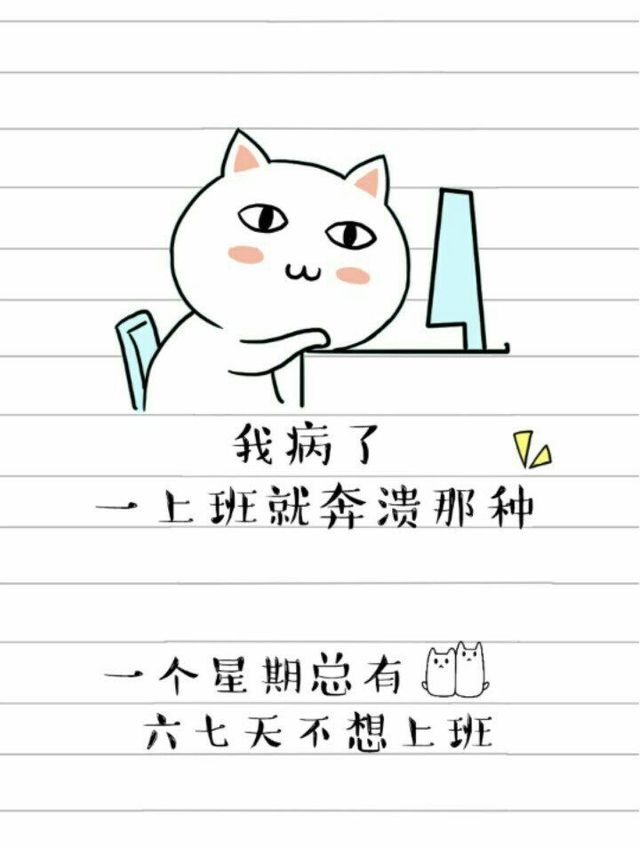 我病了
一上班就奔溃那种
一个星期总有
六七天不想上班